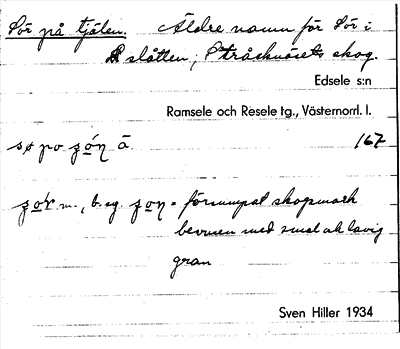 Sör på tjälen. Äldre namn för Sör i
slåtten, Stråsknäsets skog.
Edsele s:n
Ramsele och Resele tg., Västernorrl. l.
167
m., b. sg. = försumpat skogsmark
bevuxen med smal och lavig
gran
Sven Hiller 1934